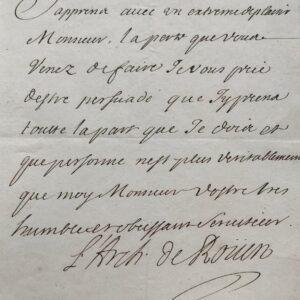 J'apprens avec un extreme deplaisir
Monsieur, la perte que vous
venez de faire Je vous prie
destre persuadé que Jyprens
toutte la part que Je dois et
que personne nest plus veritablement
que moy Monsieur vostre tres
humble et obeissant serviteur.
L'Arch. de Rouen